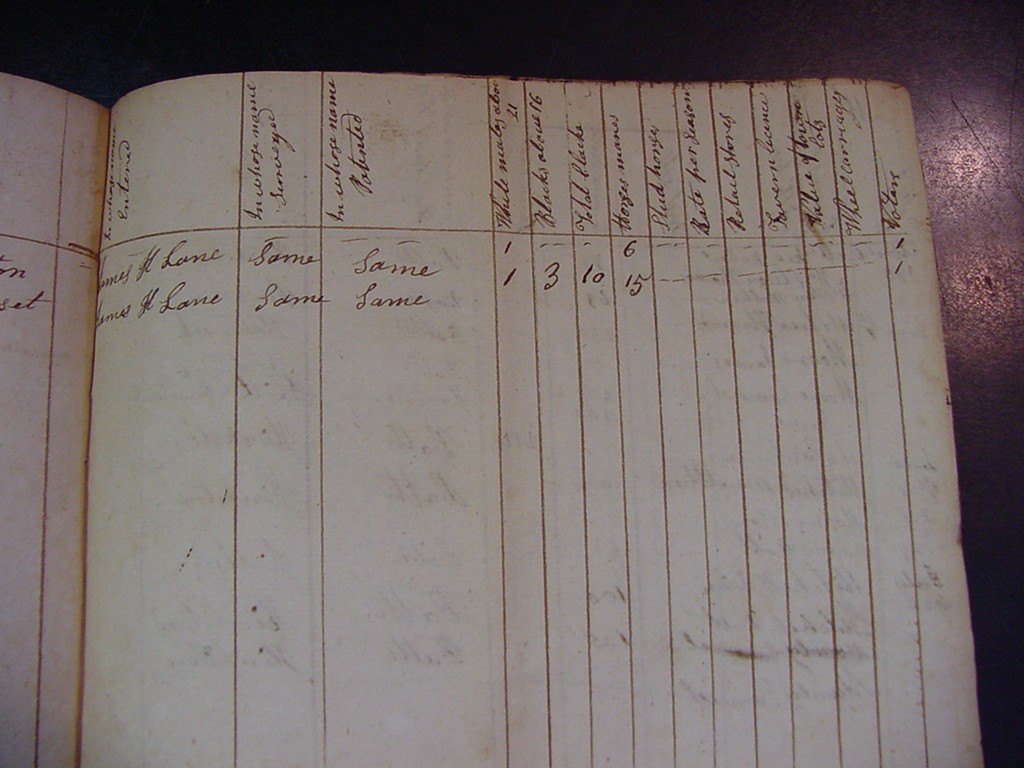 In whose name
Entered
In whose name
Surveyed
In whose name
Patented
White males above
21
Blacks above 16
Total blacks
Horses mares
Stud horses
Rate per season
Retail stores
Tavern licence
Value of town
lots
Wheel carriag
Voters
James H Lane Same Same 1 - - 6 1
ton James H Lane Same Same 1 3 10 15 1
set